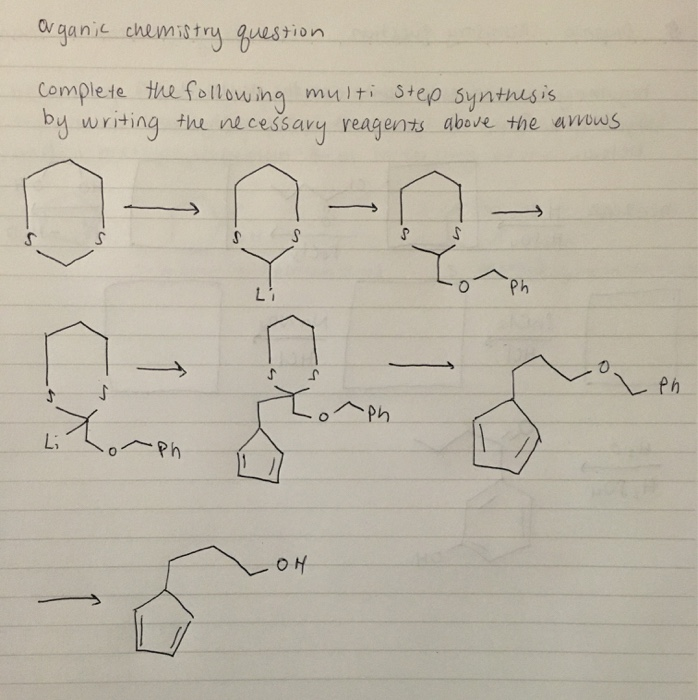 organic chemistry question
complete the following multi step synthesis
by writing the necessary reagents above the arrows
S S
S S
Li
S S
O Ph
S S
Li
O Ph
S S
O Ph
O
Ph
OH